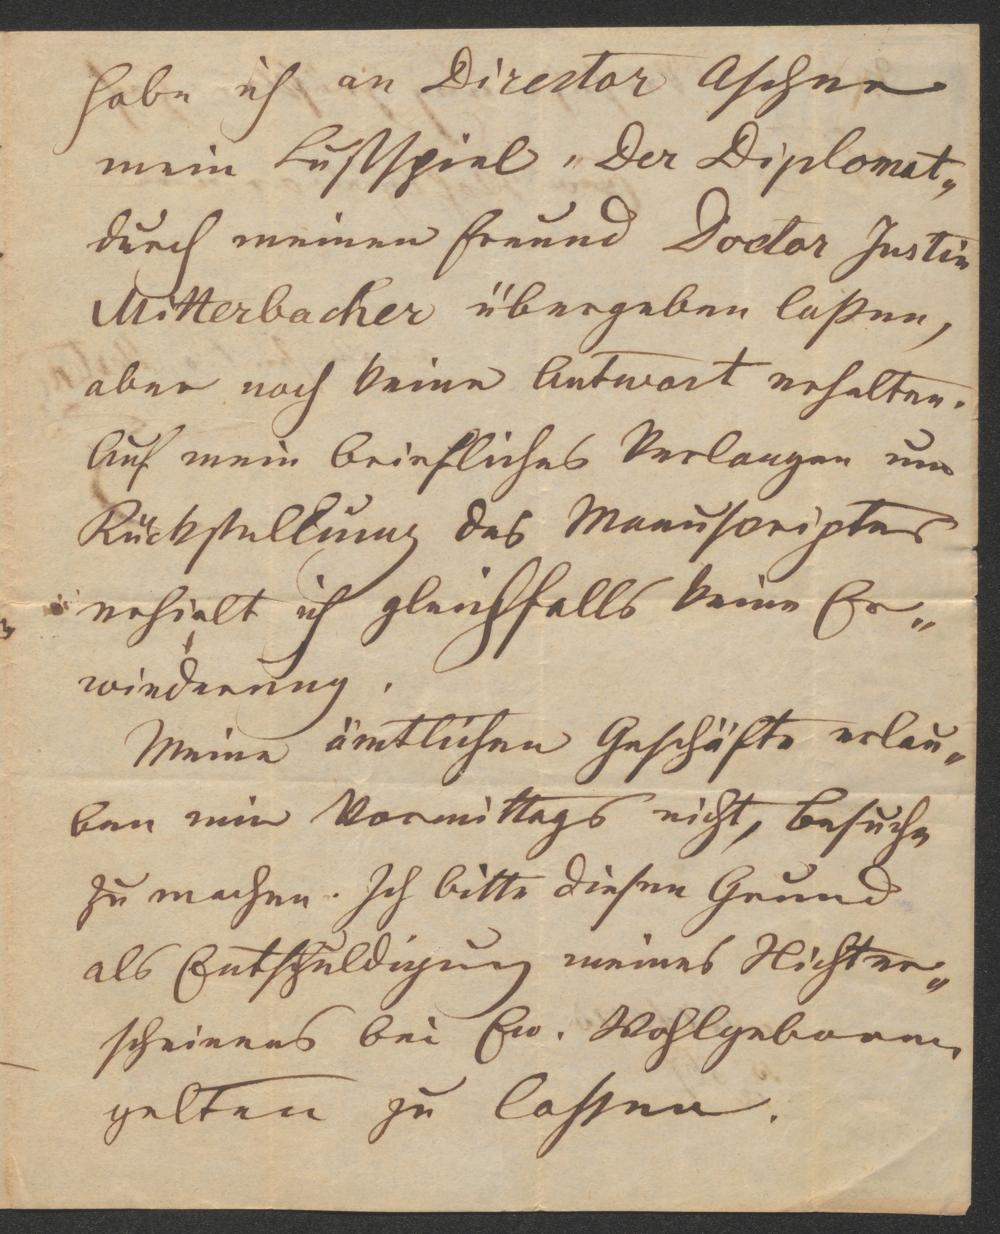 habe ich an Director Ascher
mein Lustspiel „Der Diplomat„
durch meinen Freund Doctor Justin
Mitterbacher übergeben laßen,
aber noch keine Antwort erhalten.
Auf mein briefliches Verlangen um
Rückstellung des Manuscriptes
erhielt ich gleichfalls keine Er„
wiederung.
Meine ämtlichen Geschäfte erlau„
ben mir Vormittags nicht, Besuche
zu machen. Ich bitte diesen Grund
als Entschuldigung meines Nichter„
scheinens bei Ew. Wohlgeboren
gelten zu lassen.